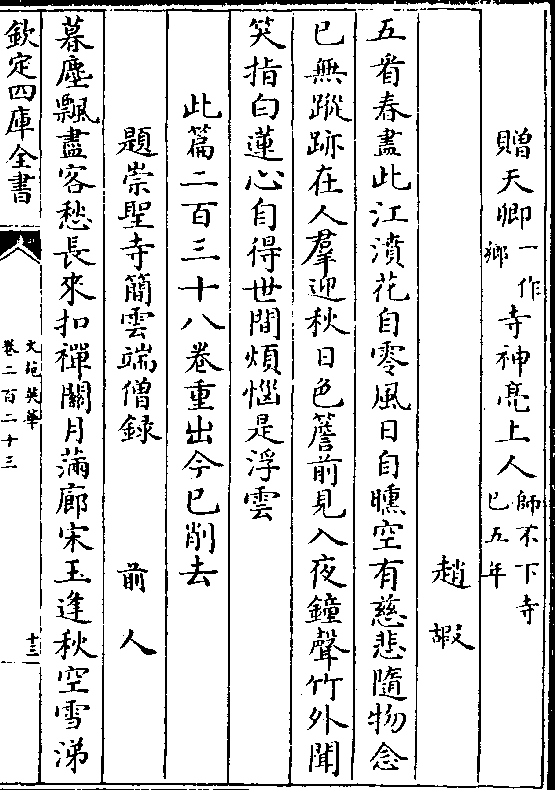 贈天卿一作鄉寺神亮上人師不下寺已五年
趙嘏
五看春盡此江濆花自零風日自曛空有慈悲隨物念
已無蹤跡在人羣迎秋日色簷前見入夜鐘聲竹外聞
笑指白蓮心自得世間煩惱是浮雲
此篇二百三十八卷重出今已削去
題崇聖寺簡雲端僧録 前人
暮塵飄盡客愁長來扣禪關月滿廊宋玉逢秋空雪涕
欽定四庫全書
文苑英華
卷二百二十三
十三